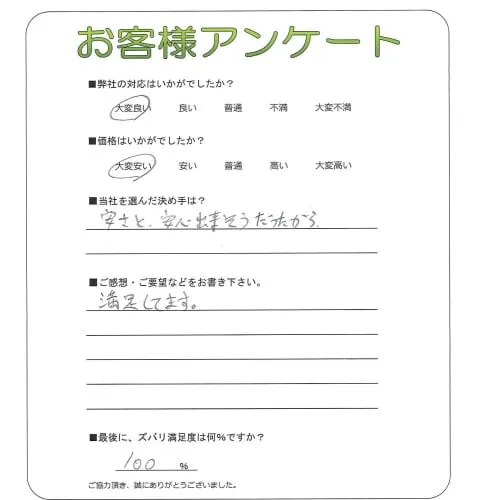 お客様アンケート
■弊社の対応はいかがでしたか？
大変良い 良い 普通 不満 大変不満
■価格はいかがでしたか？
大変安い 安い 普通 高い 大変高い
■当社を選んだ決め手は？
安さと、安心出来そうだったから
■ご感想・ご要望などをお書き下さい。
満足してます。
■最後に、ズバリ満足度は何%ですか？
100 %
ご協力頂き、誠にありがとうございました。